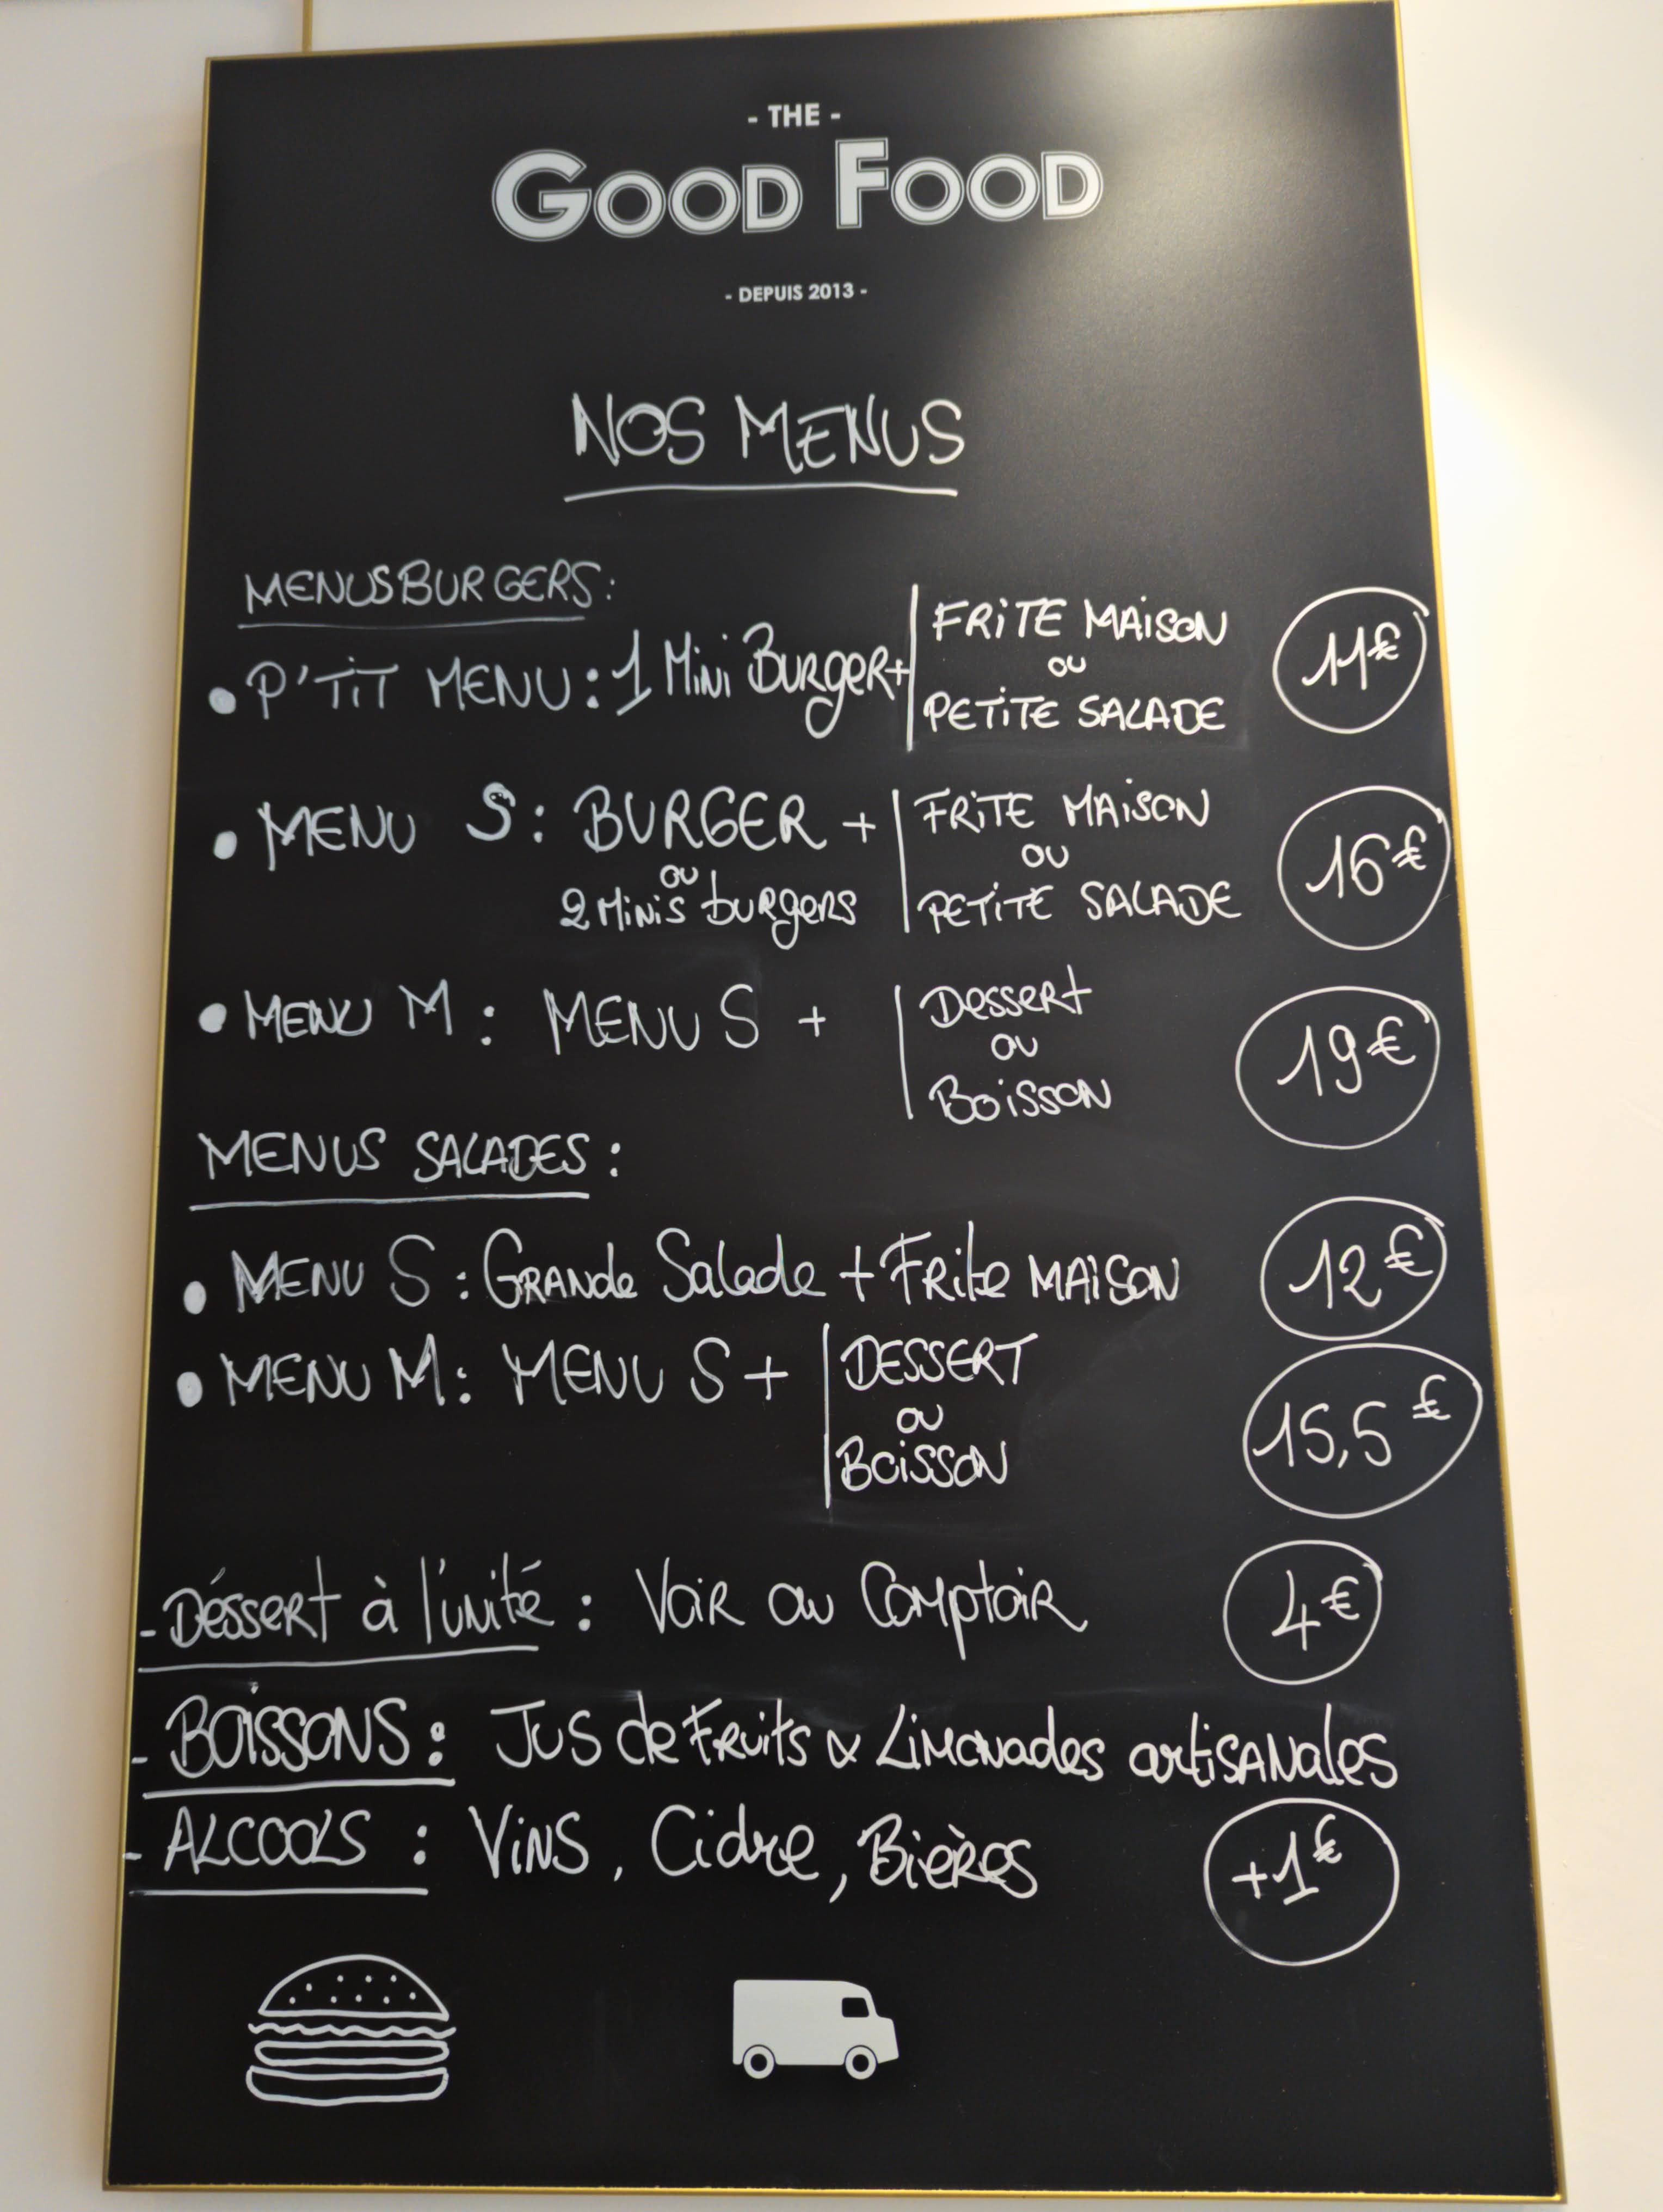 - THE -
GOOD FOOD
- DEPUIS 2013 -
NOS MENUS
MENUS BURGERS:
• P'TiT MENU : 1 Mini Burger + FRiTE MAiSON
ou
PETiTE SALADE
11€
• MENU S : BURGER + FRiTE MAiSON
ou
ou
2 Minis burgers PETiTE SALADE
16€
• MENU M : MENU S + Dessert
ou
BOiSSON
19€
MENUS SALADES :
• MENU S : GRANde Salade + Frite MAiSON 12€
• MENU M : MENU S + DESSERT
ou
BOiSSON
15,5€
- Déssert à l'unité : Voir au Comptoir 4€
- BOiSSONS : Jus de Fruits & Limonades artisanales
- ALCOOLS : ViNS, Cidre, Bières +1€